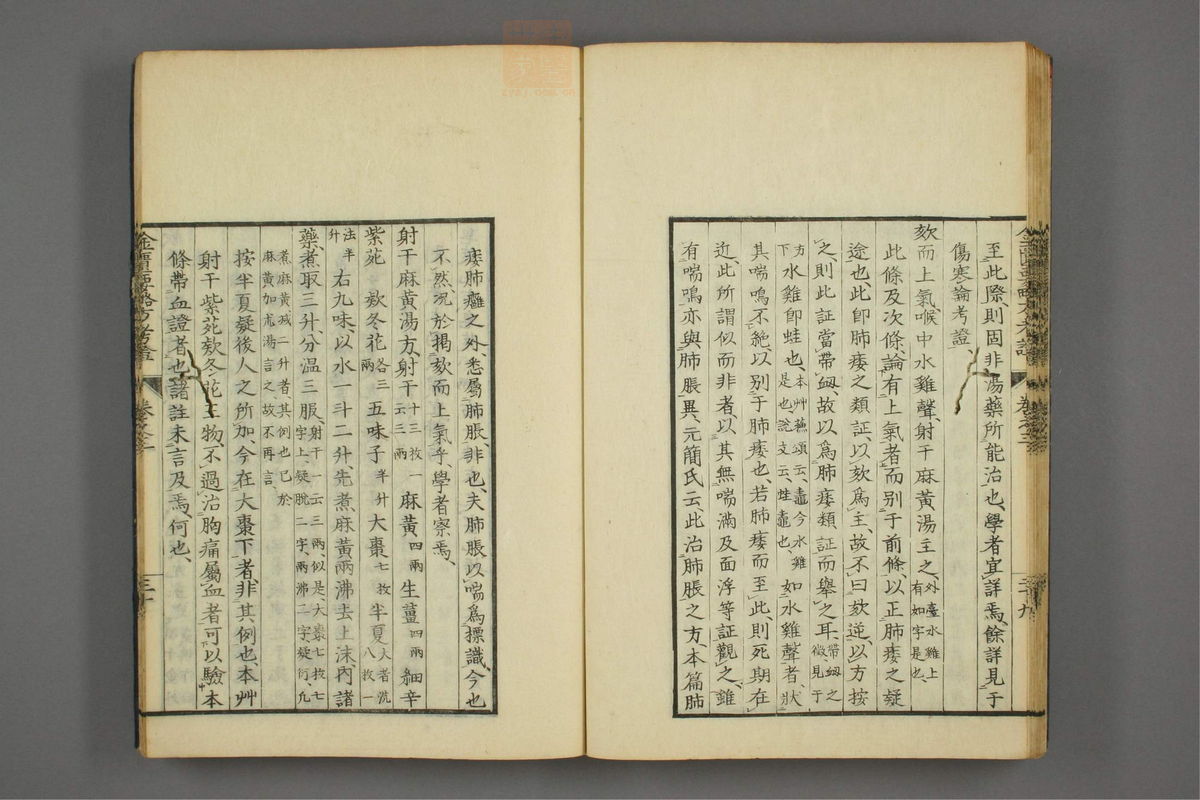 至此際則固非湯藥所能治也、學者宜詳焉、餘詳見于
傷寒論考證、
欬而上氣、喉中水雞聲、射干麻黃湯主之、外臺水雞上有如字是也、
此條及次條、論有上氣者、而别于前條、以正肺痿之疑
途也、此卽肺痿之類証、以欬爲主、故不曰欬逆、以方按
之、則此証當帶衄、故以爲肺痿類証而舉之耳、帶衄之徵見于
方下水雞卽蛙也、本艸蘓頌云、鼃今水雞是也、說文云、蛙鼃也、如水雞聲者、狀
其喘鳴不絶、以别于肺痿也、若肺痿而至此、則死期在
近、此所謂似而非者、以其無喘滿及面浮等証觀之、雖
有喘鳴、亦與肺脹異、元簡氏云、此治肺脹之方、本篇肺
痿肺癰之外、悉屬肺脹、非也、夫肺脹以喘爲摽識、今也
不然、况於揭欬而上氣乎、學者察焉、
射干麻黃湯方、射干十三枚一云三兩 麻黃四兩 生薑四兩 細辛
紫苑 欵冬花各三兩 五味子半升 大棗七枚 半夏大者洗八枚一
法半升 右九味、以水一斗二升、先煮麻黃兩沸、去上沫、內諸
藥、煮取三升、分温三服、射干一云三兩、似是、大棗七枚七字上、疑脫二字、兩沸二字疑衍、凡
煮麻黃減二升者、其例也、已於麻黃加朮湯言之、故不再言、
按半夏疑後人之所加、今在大棗下者、非其例也、本艸
射干紫苑欵冬花三物、不過治胸痛屬血者、可以驗本
條帶血證者也、諸註未言及焉、何也、
金匱要略方考證